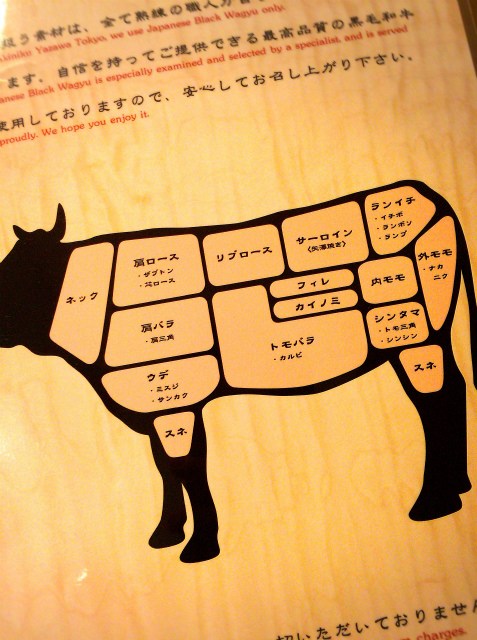 扱う素材は、全て熟練の職人が
Yakiniku Yazawa Tokyo, we use Japanese Black Wagyu only.
ます。自信を持ってご提供できる最高品質の黒毛和牛
Japanese Black Wagyu is especially examined and selected by a specialist, and is served
使用しておりますので、安心してお召し上がり下さい。
proudly. We hope you enjoy it.
ネック
肩ロース
・ザブトン
・芯ロース
リブロース
サーロイン
(矢澤焼き)
ランイチ
・イチボ
・ランボソ
・ランプ
外モモ
・ナカ
ニク
フィレ
カイノミ
内モモ
肩バラ
・肩三角
トモバラ
・カルビ
シンタマ
・トモ三角
・シンシン
ウデ
・ミスジ
・サンカク
スネ
スネ
切いただいておりません
charges.